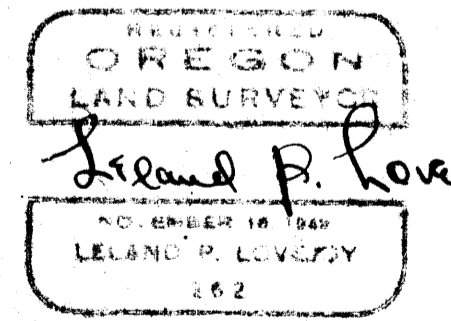 REGISTERED
OREGON
LAND SURVEYOR
Leland P. Love
NOVEMBER 18 1949
LELAND P. LOVEJOY
262